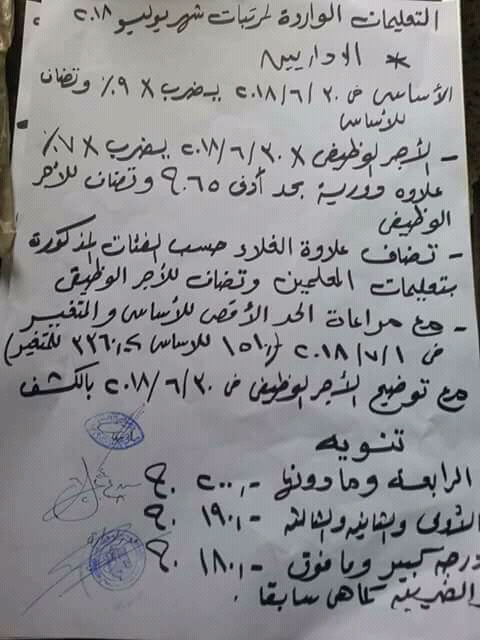 التعليمات الواردة لمرتبات شهر يوليو ٢٠١٨
* الاداريين
الأساسى فى ٢٠١٨/٦/٣٠ يضرب × ٩٪ وتضاف
للأساسى
- الأجر الوظيفى × ٢٠١٨/٦/٣٠ يضرب × ٧٪
علاوه دورية بحد أدنى ٦٥ ج وتضاف للأجر
الوظيفى
- تضاف علاوة الغلاء حسب الفئات المذكورة
بتعليمات المعلمين وتضاف للأجر الوظيفى
- مع مراعاة الحد الأقصى للأساسى والمتغير
فى ٢٠١٨/٧/١ (١٥١٠ للاساسى، ٣٣٦٠ للمتغير)
مع توضيح الأجر الوظيفى فى ٢٠١٨/٦/٣٠ بالكشف
تنويه
الرابعه وما دونها -٢٠٠ ج.
الأولى والثانيه والثالثة -١٩٠ ج.
درجه كبير وما فوق -١٨٠ ج.
والضريبة كما هى سابقا.